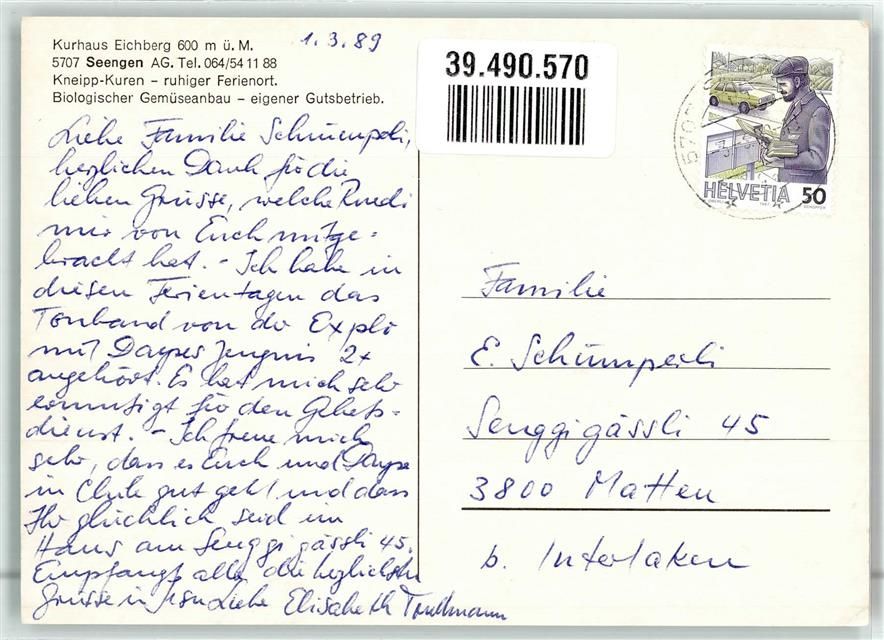 Kurhaus Eichberg 600 m ü. M.
5707 Seengen AG. Tel. 064/54 11 88
Kneipp-Kuren – ruhiger Ferienort.
Biologischer Gemüseanbau – eigener Gutsbetrieb.
1.3.89
39.490.570
5707
HELVETIA 50
Liebe Familie Schümperli,
herzlichen Dank für die
lieben Grüsse, welche Ruedi
mir von Euch mitge-
bracht hat. – Ich habe in
diesen Ferientagen das
Tonband von der Explo
mit Zeugnis 2x
angehört. Es hat mich sehr
ermutigt für den Gebets-
dienst. – Ich freue mich
sehr, dass es Euch und
in Chile gut geht und dass
Ihr glücklich seid im
Haus am Senggigässli 45.
Empfangt alle die herzlichsten
Grüsse in Jesu Liebe Elisabeth
Familie
E. Schümperli
Senggigässli 45
3800 Matten
b. Interlaken